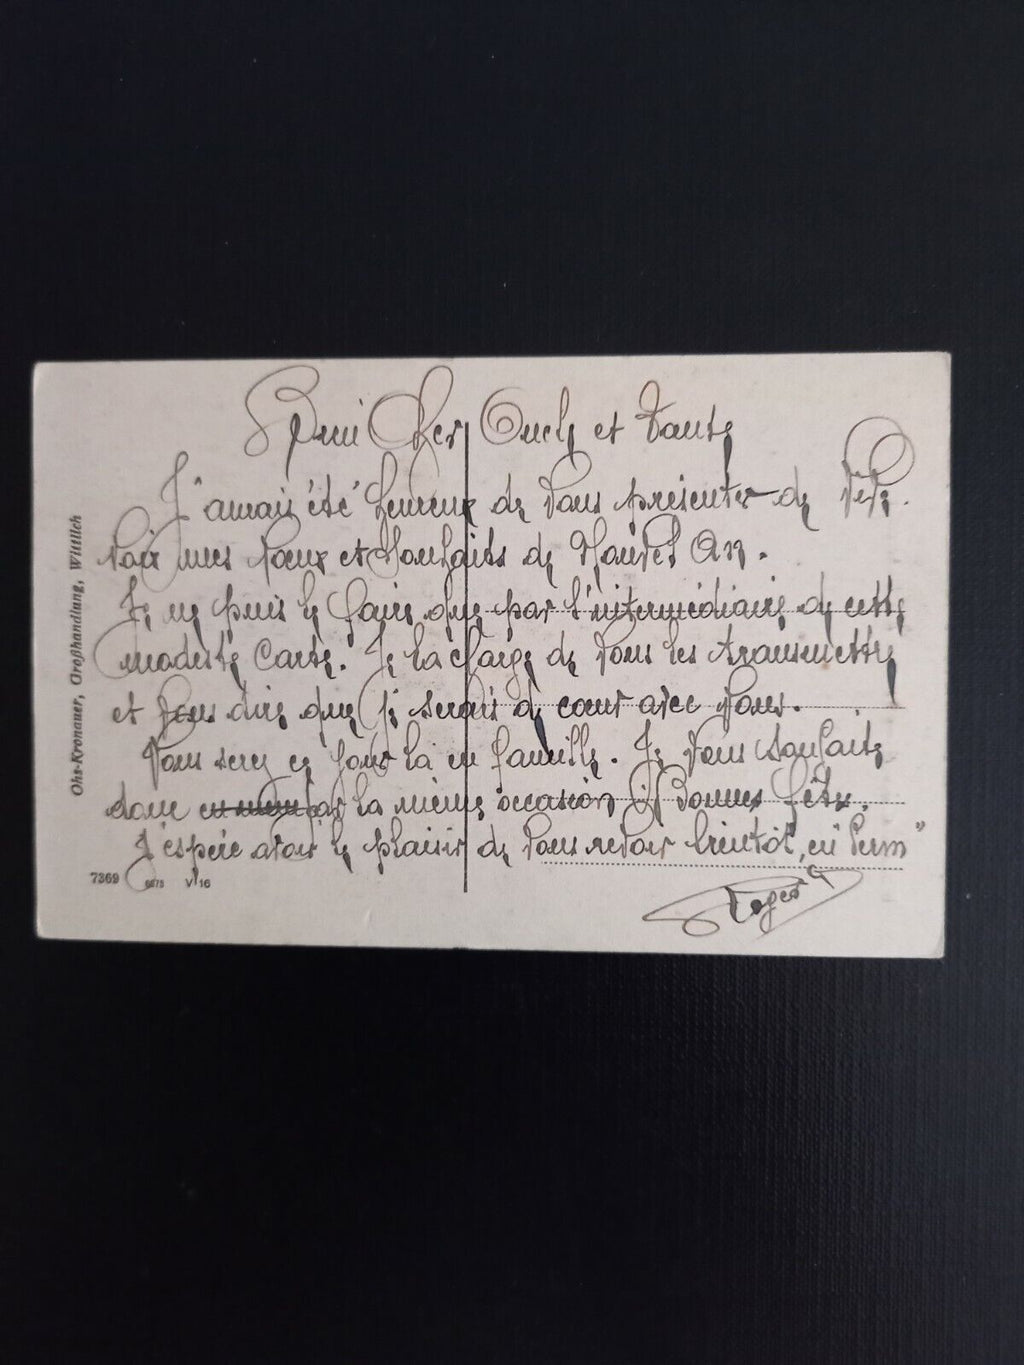 Cher Oncle et Tante
J'aurais été heureux de vous présenter de vive
voix mes voeux et souhaits de Nouvel An.
Je ne puis le faire que par l'intermédiaire de cette
modeste Carte. Je la charge de vous les transmettre
et vous dire que je serais de coeur avec vous.
Vous serez ce jour là en famille. Je vous souhaite
donc par la même occasion Bonnes fête.
J'espère avoir le plaisir de vous revoir bientôt, en "Perm"
Roger
Ohs-Kronauer, Großhandlung, Wittlich
7369 V/16